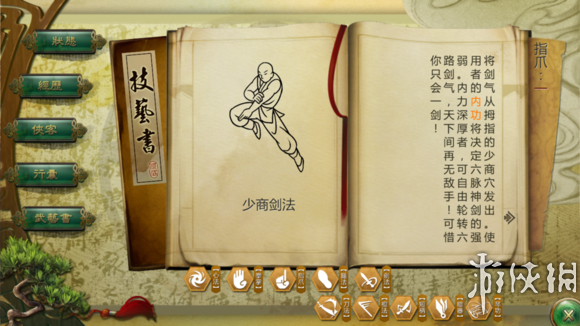 狀態
經歷
俠客
行囊
技藝書
技藝書
少商剑法
指爪：一
将剑气从拇指的少商穴发出。使
用者的内功将决定六脉神剑的强
弱。内力深厚者，可自由轮转六
路剑气，天下间再无敌手！可惜
你只会一剑！
游侠网